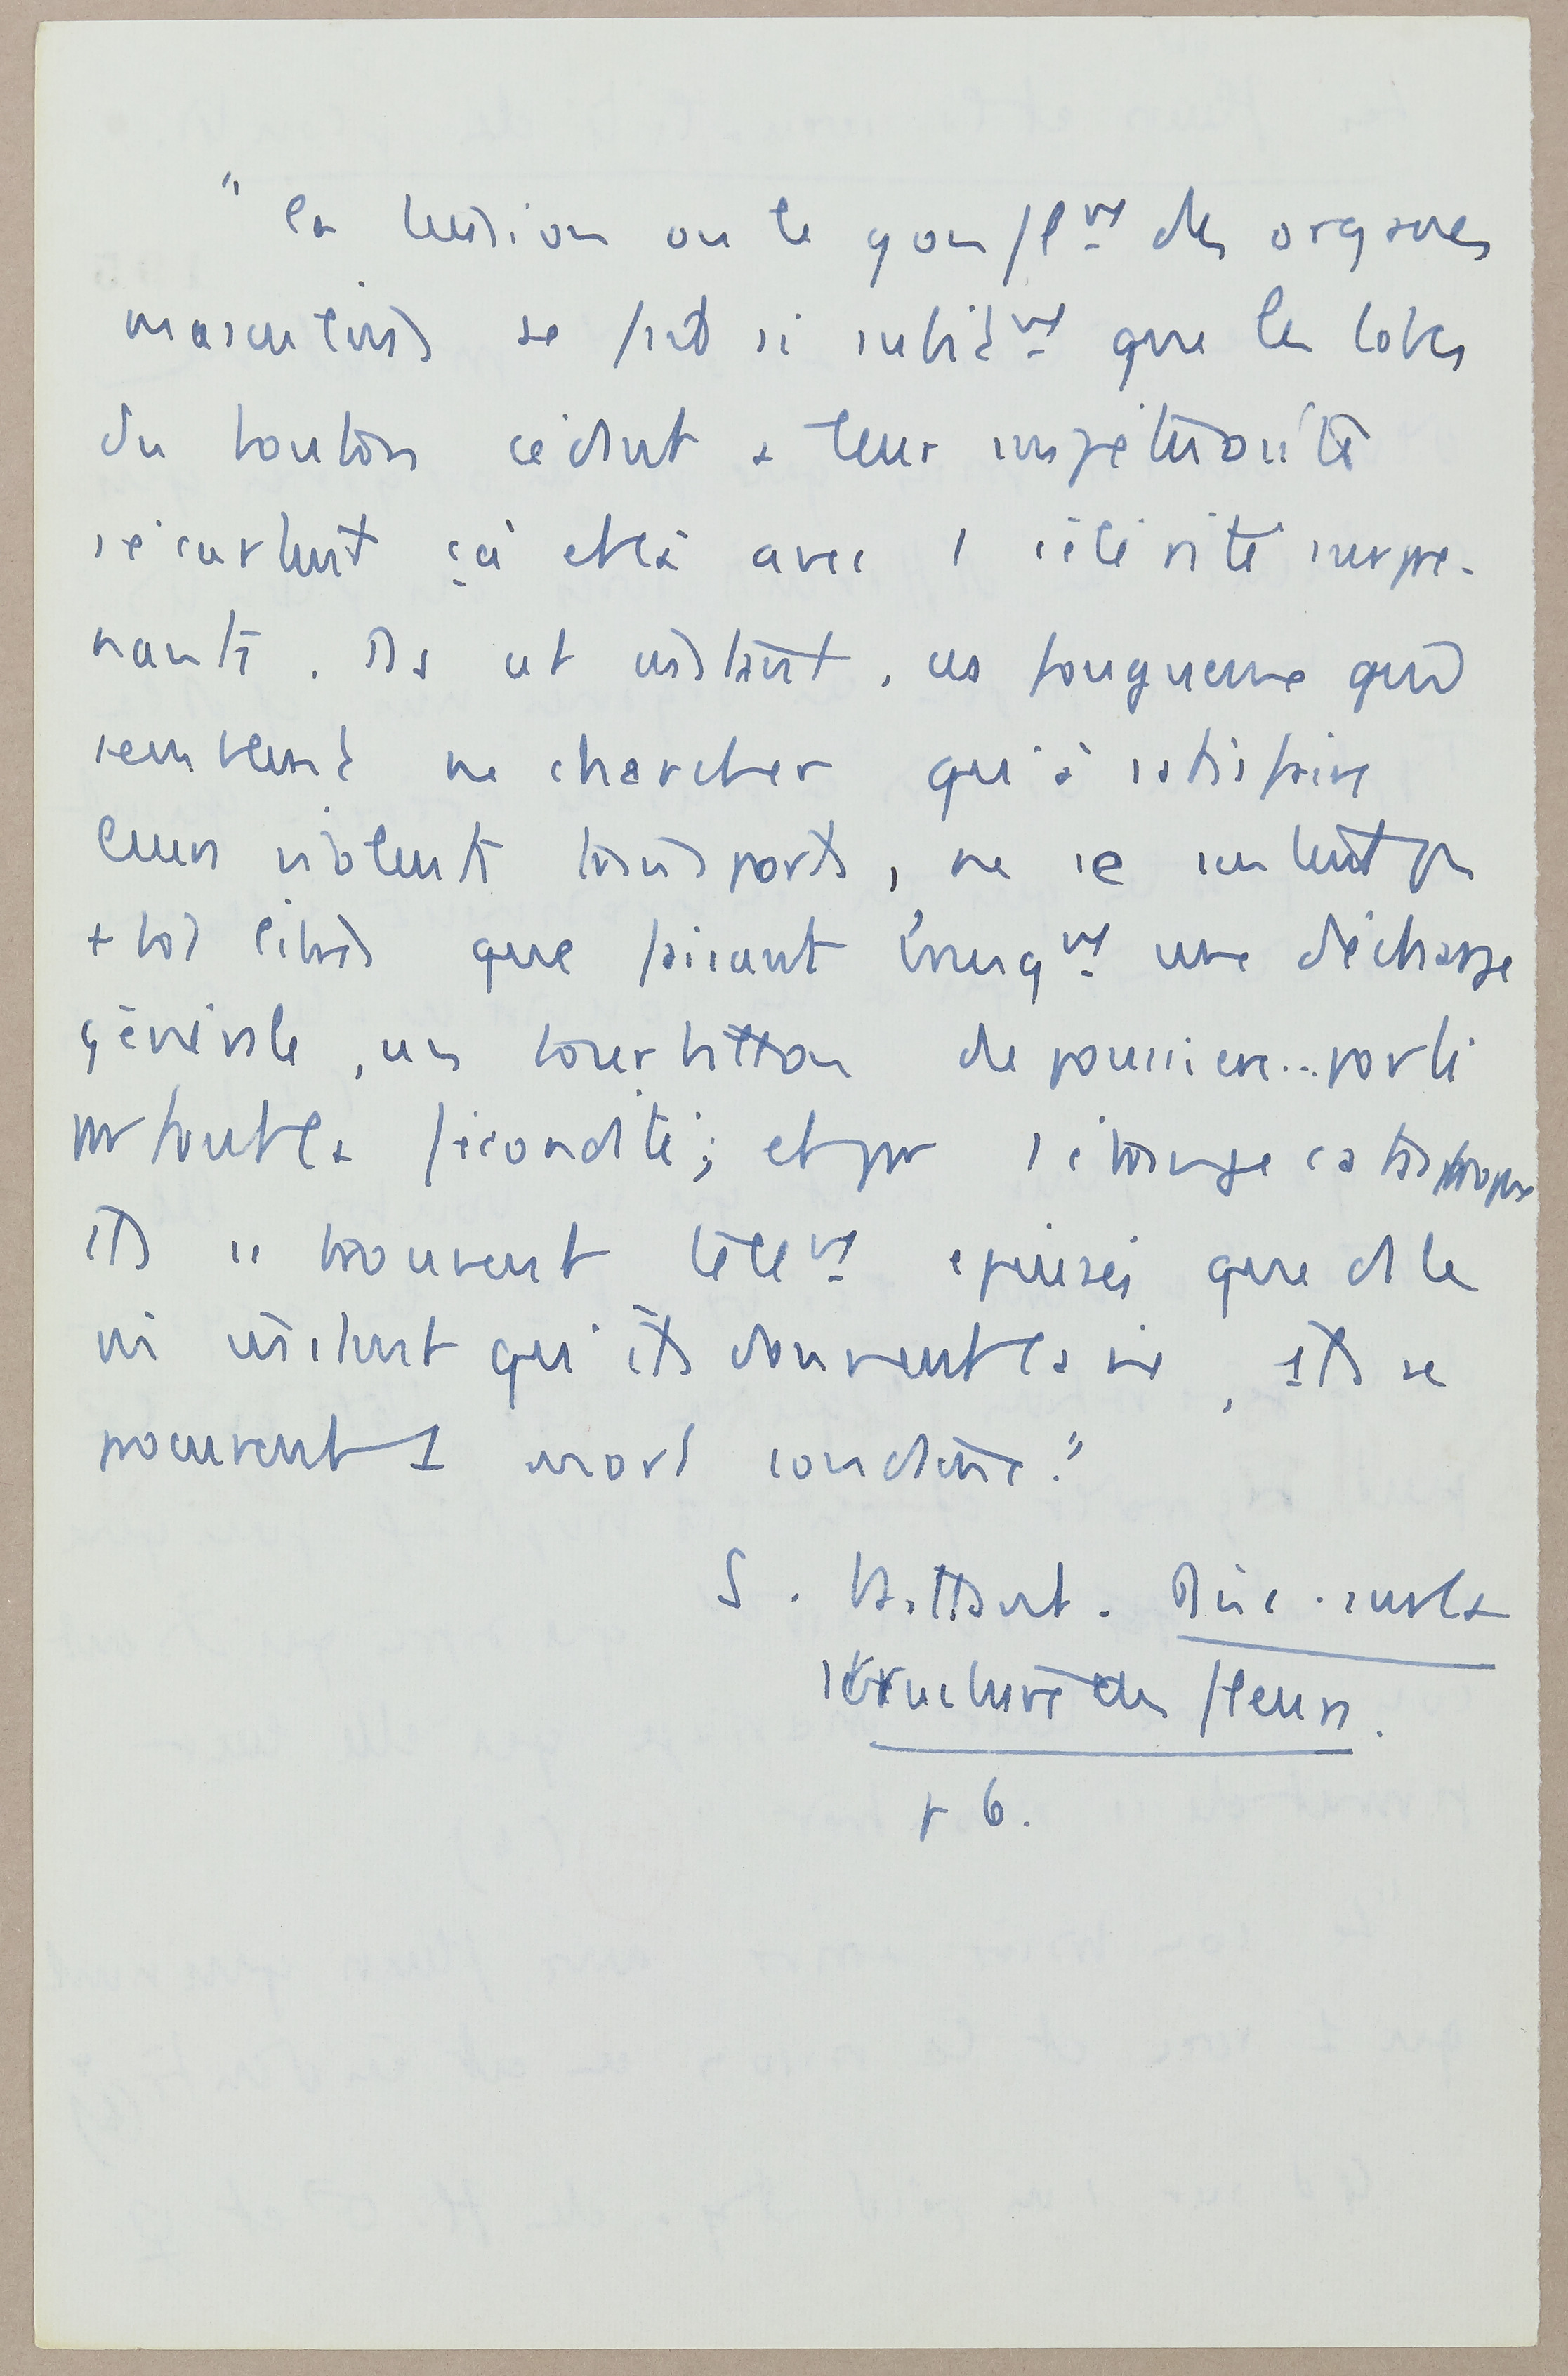 " la tension ou le gonflmt des organes
masculins se fait si subitmt que les lobes
du bouton cédant à leur impétuosité
s'écartent çà et là avec 1 célérité surpre-
nante. Ds cet instant, ces fougueux qui
semblent ne chercher qu'à satisfaire
leurs violents transports, ne se sentent pas
+ tôt libres que faisant brusqmt une décharge
générale, un tourbillon de poussière... porte
partout la fécondité; et par 1 étrange catastrophe
ils se trouvent tellmt épuisés que ds le
même instant qu'ils donnent la vie, ils se
procurent 1 mort soudaine."
S. Vaillant. Disc. sur la
structure des fleurs.
p 6.